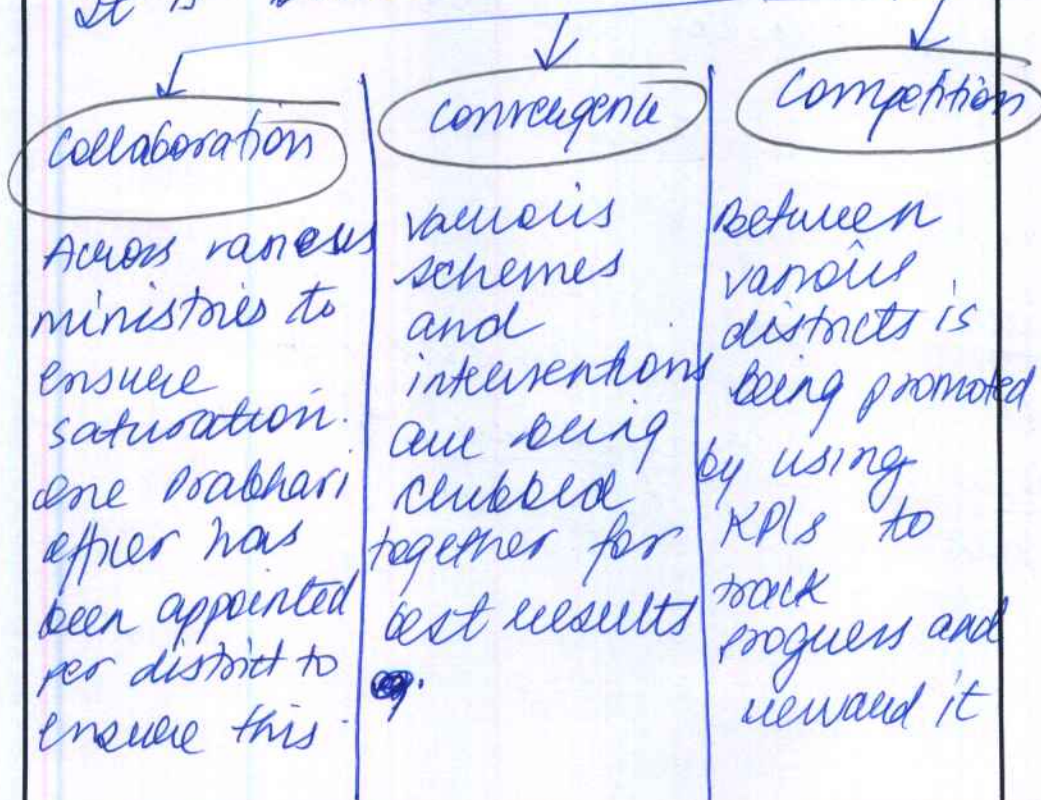 It is
Collaboration
Across various
ministries to
ensure
saturation.
One Prabhari
officer has
been appointed
per district to
ensure this.
Convergence
Various
schemes
and
interventions
are being
clubbed
together for
best results
Competition
Between
various
districts is
being promoted
by using
KPIs to
track
progress and
reward it